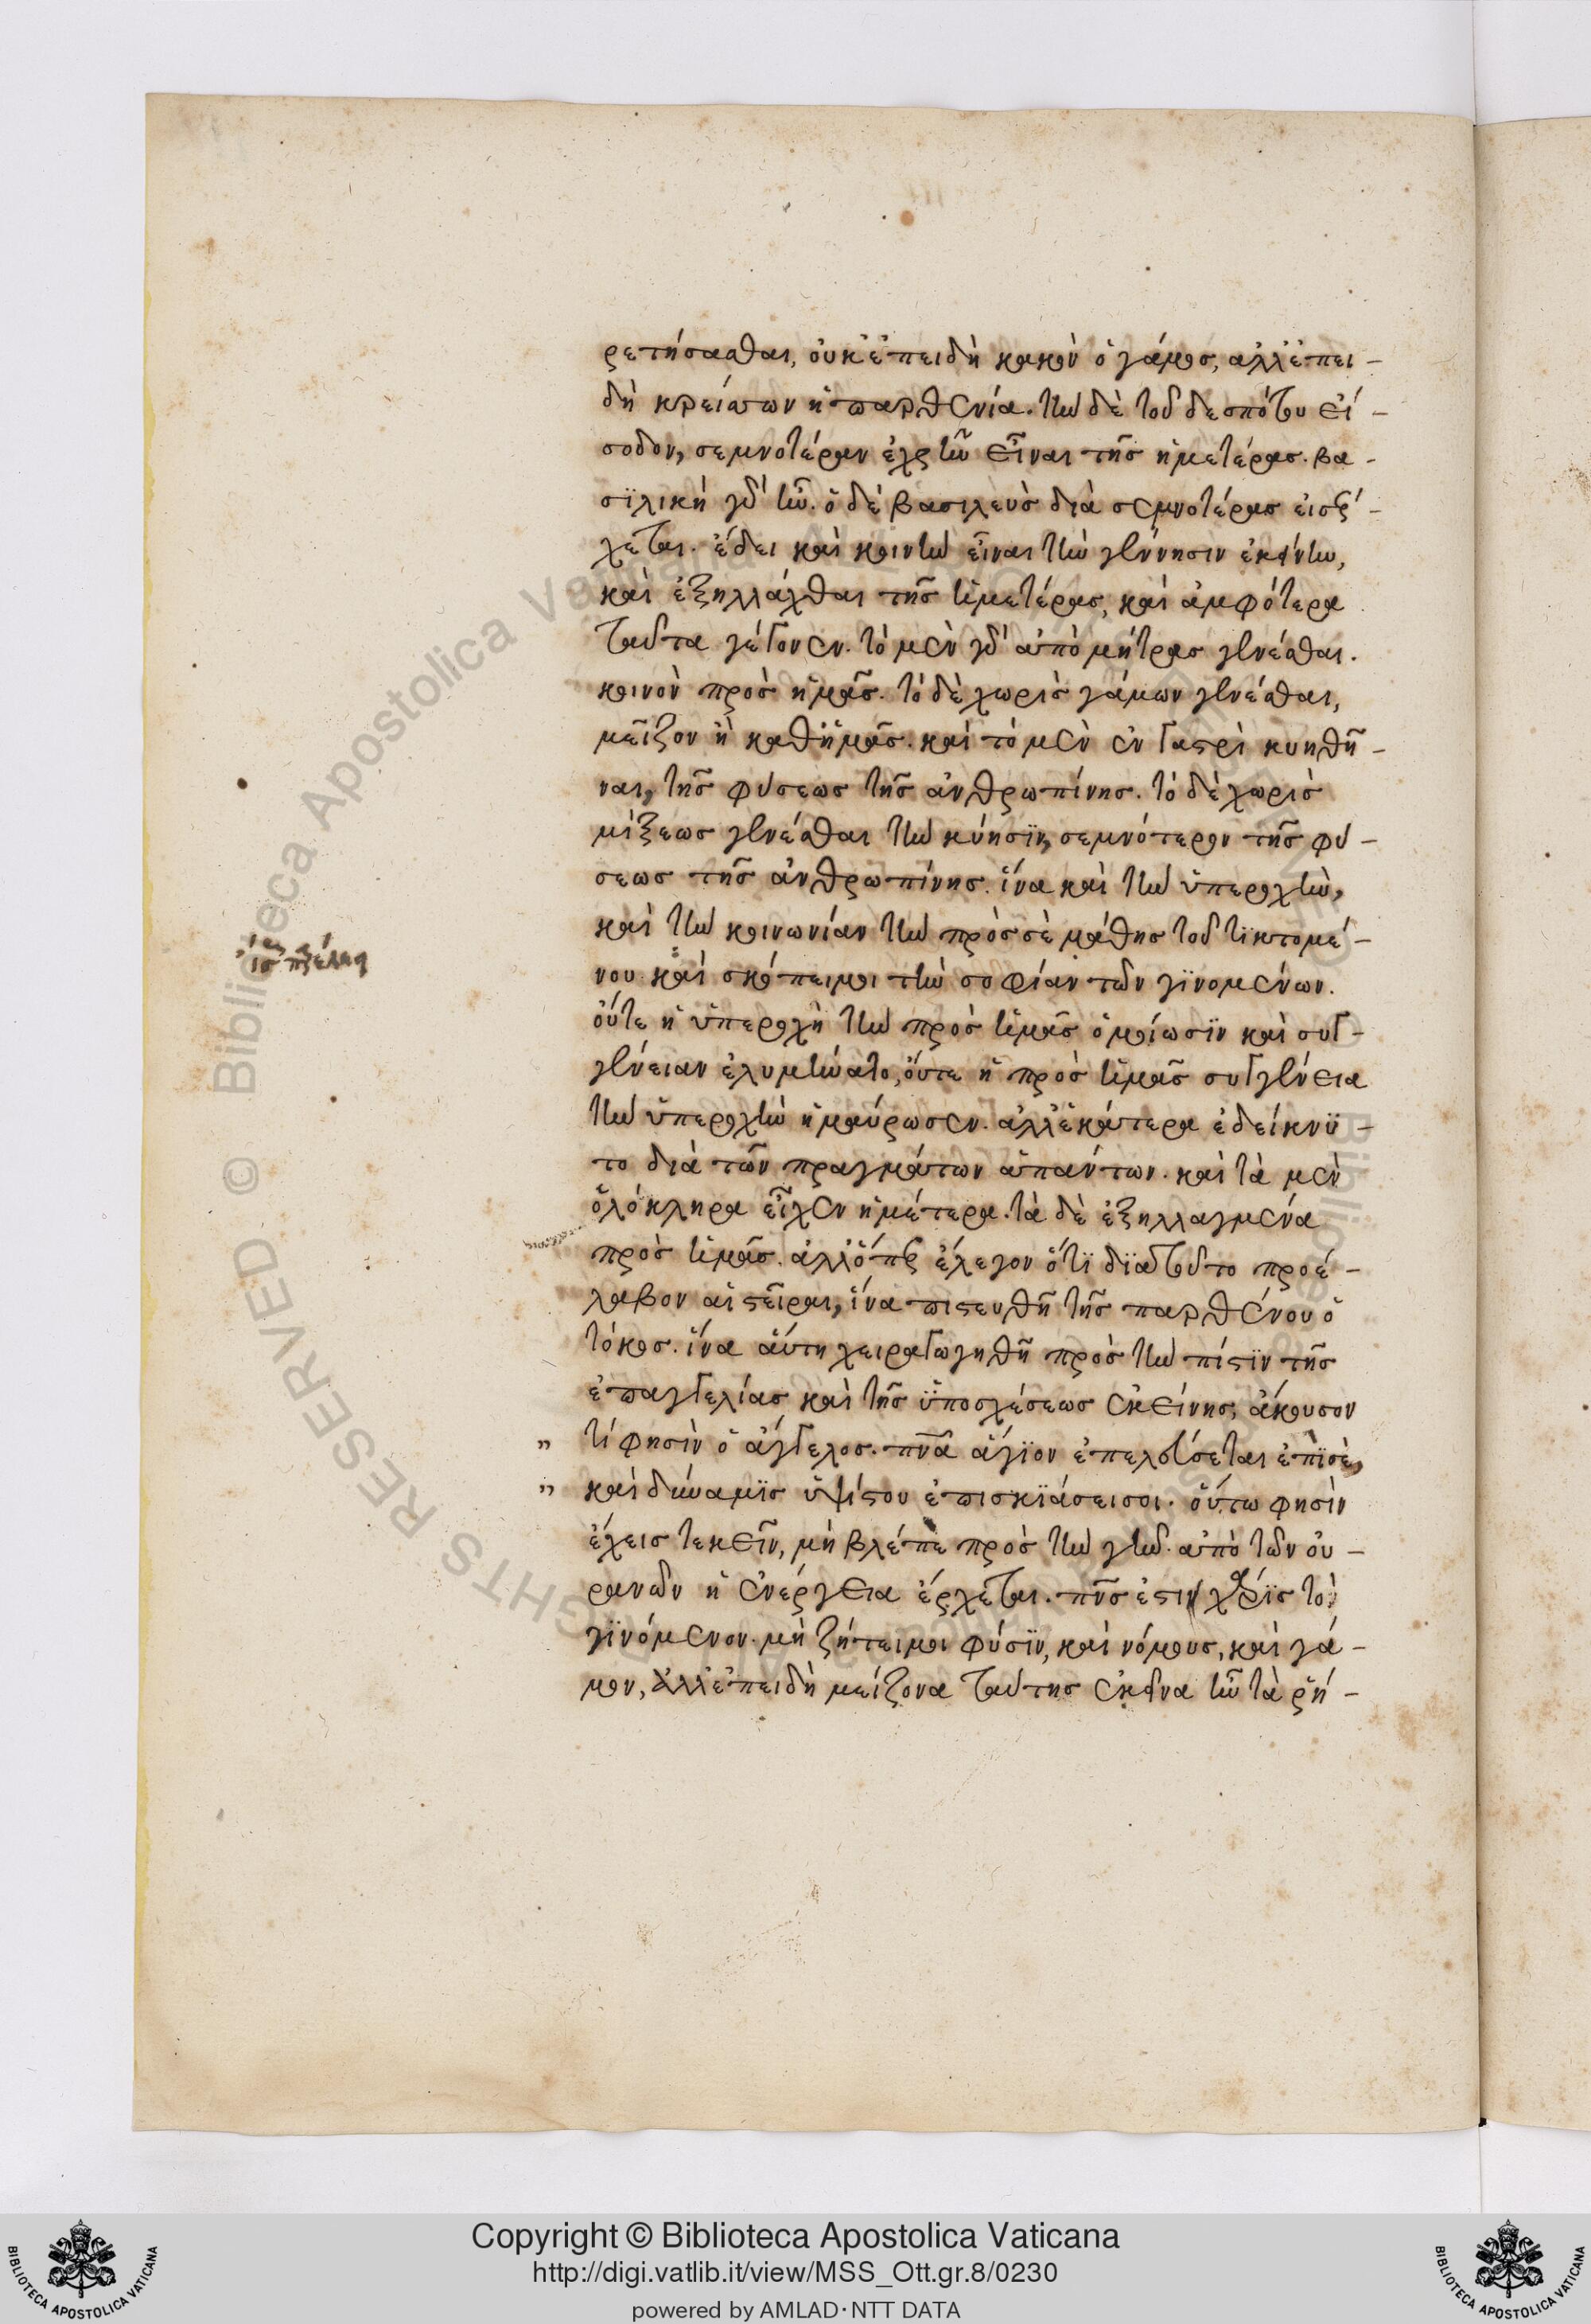 ρετήσασθαι, οὐκ ἐπειδὴ κακὸν ὁ γάμος, ἀλλ' ἐπει-
δὴ κρείττων ἡ παρθενία. τὴν δὲ τοῦ δεσπότου εἴ-
σοδον, σεμνοτέραν ἐχρῆν εἶναι τῆς ἡμετέρας. βα-
σϊλικὴ γὰρ ἦν. ὁ δὲ βασιλεὺς διὰ σεμνοτέρας εἰσέρ-
χεται. ἔδει καὶ κοινὴν εἶναι τὴν γέννησιν ἐκείνην,
καὶ ἐξηλλάχθαι τῆς ἡμετέρας, καὶ ἀμφότερα
ταῦτα γέγονεν. τὸ μὲν γὰρ ἀπὸ μήτρας γενέσθαι.
κοινὸν πρὸς ἡμᾶς. τὸ δὲ χωρὶς γάμων γενέσθαι,
μεῖζον ἢ καθ' ἡμᾶς. καὶ τὸ μὲν ἐν γαστρὶ κυηθῆ-
ναι, τῆς φύσεως τῆς ἀνθρωπίνης. τὸ δὲ χωρὶς
μίξεως γενέσθαι τὴν κύησϊν, σεμνότερον τῆς φύ-
σεως τῆς ἀνθρωπίνης. ἵνα καὶ τὴν ὑπεροχὴν,
καὶ τὴν κοινωνίαν τὴν πρὸς σὲ μάθης τοῦ τϊκτομέ-
νου. καὶ σκόπει μοι τὴν σοφίαν τῶν γϊνομένων.
οὔτε ἡ ὑπεροχὴ τὴν πρὸς ἡμᾶς ὁμοίωσϊν καὶ συγ-
γένειαν ἐλυμήνατο, οὔτε ἡ πρὸς ἡμᾶς συγγένεια
τὴν ὑπεροχὴν ἠμαύρωσεν. ἀλλ' ἑκάτερα ἐδείκνϋ-
το διὰ τῶν πραγμάτων ἁπάντων. καὶ τὰ μὲν
ὁλόκληρα εἶχεν ἡμέτερα. τὰ δὲ ἐξηλλαγμένα
πρὸς ἡμᾶς. ἀλλ' ὅπερ ἔλεγον ὅτϊ δϊὰ τοῦτο προέ-
λαβον αἱ στεῖραι, ἵνα πιστευθῆ τῆς παρθένου ὁ
τόκος. ἵνα αὕτη χειραγωγηθῆ πρὸς τὴν πίστϊν τῆς
ἐπαγγελίας καὶ τῆς ὑποσχέσεως ἐκείνης, ἄκουσον
" τί φησὶν ὁ ἄγγελος. πνᾶ ἅγϊον ἐπελεύσεται ἐπὶ σὲ,
" καὶ δύναμϊς ὑψίστου ἐπισκϊάσει σοι. οὕτω φησὶν
ἔχεις τεκεῖν, μὴ βλέπε πρὸς τὴν γῆν. ἀπὸ τῶν οὐ-
ρανῶν ἡ ἐνέργεια ἔρχεται. πνς ἐστιν χάρϊς τὸ
γϊνόμενον. μὴ ζήτει μοι φύσϊν, καὶ νόμους, καὶ γά-
μον, ἀλλ' ἐπειδὴ μείζονα ταύτης ἐκεῖνα ἦν τὰ ῥή-